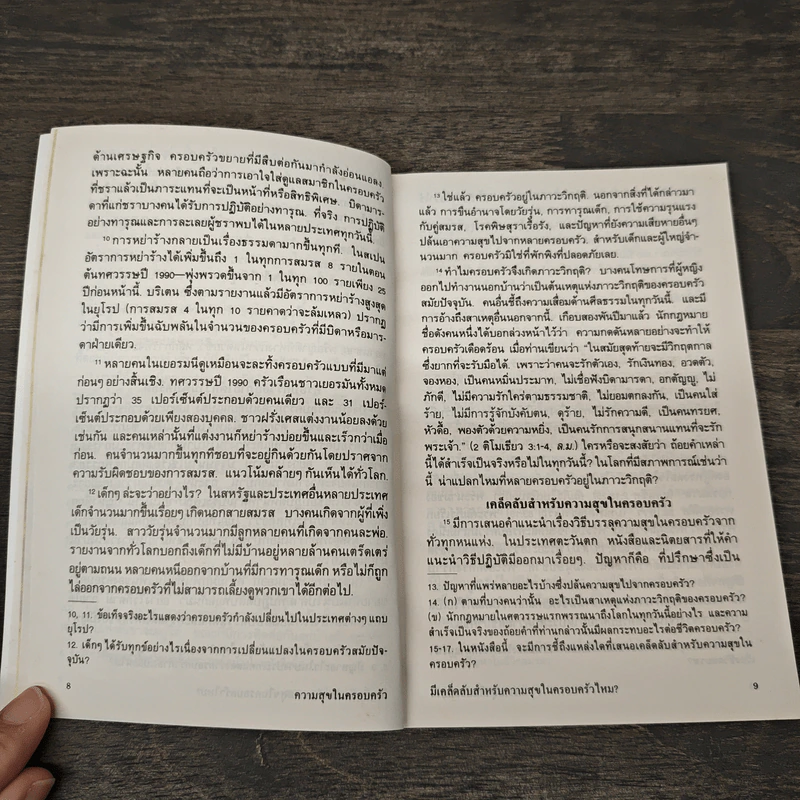 ด้านเศรษฐกิจ ครอบครัวขยายที่มีสืบต่อกันมากำลังอ่อนแอลง
เพราะฉะนั้น หลายคนถือว่าการเอาใจใส่ดูแลสมาชิกในครอบครัว
ที่ชราแล้วเป็นภาระแทนที่จะเป็นหน้าที่หรือสิทธิพิเศษ. บิดามาร-
ดาที่แก่ชราบางคนได้รับการปฏิบัติอย่างทารุณ. ที่จริง การปฏิบัติ
อย่างทารุณและการละเลยผู้ชราพบได้ในหลายประเทศทุกวันนี้.
10 การหย่าร้างกลายเป็นเรื่องธรรมดามากขึ้นทุกที. ในสเปน
อัตราการหย่าร้างได้เพิ่มขึ้นถึง 1 ในทุกการสมรส 8 รายในตอน
ต้นทศวรรษปี 1990—พุ่งพรวดขึ้นจาก 1 ในทุก 100 รายเพียง 25
ปีก่อนหน้านี้. บริเตน ซึ่งตามรายงานแล้วมีอัตราการหย่าร้างสูงสุด
ในยุโรป (การสมรส 4 ในทุก 10 รายคาดว่าจะล้มเหลว) ปรากฏ
ว่ามีการเพิ่มขึ้นฉับพลันในจำนวนของครอบครัวที่มีบิดาหรือมาร-
ดาฝ่ายเดียว.
11 หลายคนในเยอรมนีดูเหมือนจะละทิ้งครอบครัวแบบที่มีมาแต่
ก่อนๆ อย่างสิ้นเชิง. ทศวรรษปี 1990 ครัวเรือนชาวเยอรมันทั้งหมด
ปรากฏว่า 35 เปอร์เซ็นต์ประกอบด้วยคนเดียว และ 31 เปอร์-
เซ็นต์ประกอบด้วยเพียงสองบุคคล. ชาวฝรั่งเศสแต่งงานน้อยลงด้วย
เช่นกัน และคนเหล่านั้นที่แต่งงานก็หย่าร้างบ่อยขึ้นและเร็วกว่าเมื่อ
ก่อน. คนจำนวนมากขึ้นทุกทีชอบที่จะอยู่กินด้วยกันโดยปราศจาก
ความรับผิดชอบของการสมรส. แนวโน้มคล้ายๆ กันเห็นได้ทั่วโลก.
12 เด็กๆ ล่ะจะว่าอย่างไร? ในสหรัฐและประเทศอื่นหลายประเทศ
เด็กจำนวนมากขึ้นเรื่อยๆ เกิดนอกสายสมรส บางคนเกิดจากผู้ที่เพิ่ง
เป็นวัยรุ่น. สาววัยรุ่นจำนวนมากมีลูกหลายคนที่เกิดจากคนละพ่อ.
รายงานจากทั่วโลกบอกถึงเด็กที่ไม่มีบ้านอยู่หลายล้านคนเตร็ดเตร่
อยู่ตามถนน หลายคนหนีออกจากบ้านที่มีการทารุณเด็ก หรือไม่ก็ถูก
ไล่ออกจากครอบครัวที่ไม่สามารถเลี้ยงดูพวกเขาได้อีกต่อไป.
10, 11. ข้อเท็จจริงอะไรแสดงว่าครอบครัวกำลังเปลี่ยนไปในประเทศต่างๆ แถบ
ยุโรป?
12. เด็กๆ ได้รับทุกข์อย่างไรเนื่องจากการเปลี่ยนแปลงในครอบครัวสมัยปัจ-
จุบัน?
8 ความสุขในครอบครัว
13 ใช่แล้ว ครอบครัวอยู่ในภาวะวิกฤติ. นอกจากสิ่งที่ได้กล่าวมา
แล้ว การขืนอำนาจโดยวัยรุ่น, การทารุณเด็ก, การใช้ความรุนแรง
กับคู่สมรส, โรคพิษสุราเรื้อรัง, และปัญหาที่ยังความเสียหายอื่นๆ
ปล้นเอาความสุขไปจากหลายครอบครัว. สำหรับเด็กและผู้ใหญ่จำ-
นวนมาก ครอบครัวมิใช่ที่พักพิงที่ปลอดภัยเลย.
14 ทำไมครอบครัวจึงเกิดภาวะวิกฤติ? บางคนโทษการที่ผู้หญิง
ออกไปทำงานนอกบ้านว่าเป็นต้นเหตุแห่งภาวะวิกฤติของครอบครัว
สมัยปัจจุบัน. คนอื่นชี้ถึงความเสื่อมด้านศีลธรรมในทุกวันนี้. และมี
การอ้างถึงสาเหตุอื่นนอกจากนี้. เกือบสองพันปีมาแล้ว นักกฎหมาย
ชื่อดังคนหนึ่งได้บอกล่วงหน้าไว้ว่า ความกดดันหลายอย่างจะทำให้
ครอบครัวเดือดร้อน เมื่อท่านเขียนว่า “ในสมัยสุดท้ายจะมีวิกฤตกาล
ซึ่งยากที่จะรับมือได้. เพราะว่าคนจะรักตัวเอง, รักเงินทอง, อวดตัว,
จองหอง, เป็นคนหมิ่นประมาท, ไม่เชื่อฟังบิดามารดา, อกตัญญู, ไม่
ภักดี, ไม่มีความรักใคร่ตามธรรมชาติ, ไม่ยอมตกลงกัน, เป็นคนใส่
ร้าย, ไม่มีการรู้จักบังคับตน, ดุร้าย, ไม่รักความดี, เป็นคนทรยศ,
หัวดื้อ, พองตัวด้วยความหยิ่ง, เป็นคนรักการสนุกสนานแทนที่จะรัก
พระเจ้า.” (2 ติโมเธียว 3:1-4, ล.ม.) ใครหรือจะสงสัยว่า ถ้อยคำเหล่า
นี้ได้สำเร็จเป็นจริงหรือไม่ในทุกวันนี้? ในโลกที่มีสภาพการณ์เช่นว่า
นี้ น่าแปลกไหมที่หลายครอบครัวอยู่ในภาวะวิกฤติ?
เคล็ดลับสำหรับความสุขในครอบครัว
15 มีการเสนอคำแนะนำเรื่องวิธีบรรลุความสุขในครอบครัวจาก
ทั่วทุกหนแห่ง. ในประเทศตะวันตก หนังสือและนิตยสารที่ให้คำ
แนะนำวิธีปฏิบัติมีออกมาเรื่อยๆ. ปัญหาก็คือ ที่ปรึกษาซึ่งเป็น
13. ปัญหาที่แพร่หลายอะไรบ้างซึ่งปล้นความสุขไปจากครอบครัว?
14. (ก) ตามที่บางคนว่านั้น อะไรเป็นสาเหตุแห่งภาวะวิกฤติของครอบครัว?
(ข) นักกฎหมายในศตวรรษแรกพรรณนาถึงโลกในทุกวันนี้อย่างไร และความ
สำเร็จเป็นจริงของถ้อยคำที่ท่านกล่าวนั้นมีผลกระทบอะไรต่อชีวิตครอบครัว?
15-17. ในหนังสือนี้ จะมีการชี้ถึงแหล่งใดที่เสนอเคล็ดลับสำหรับความสุขใน
ครอบครัว?
มีเคล็ดลับสำหรับความสุขในครอบครัวไหม? 9